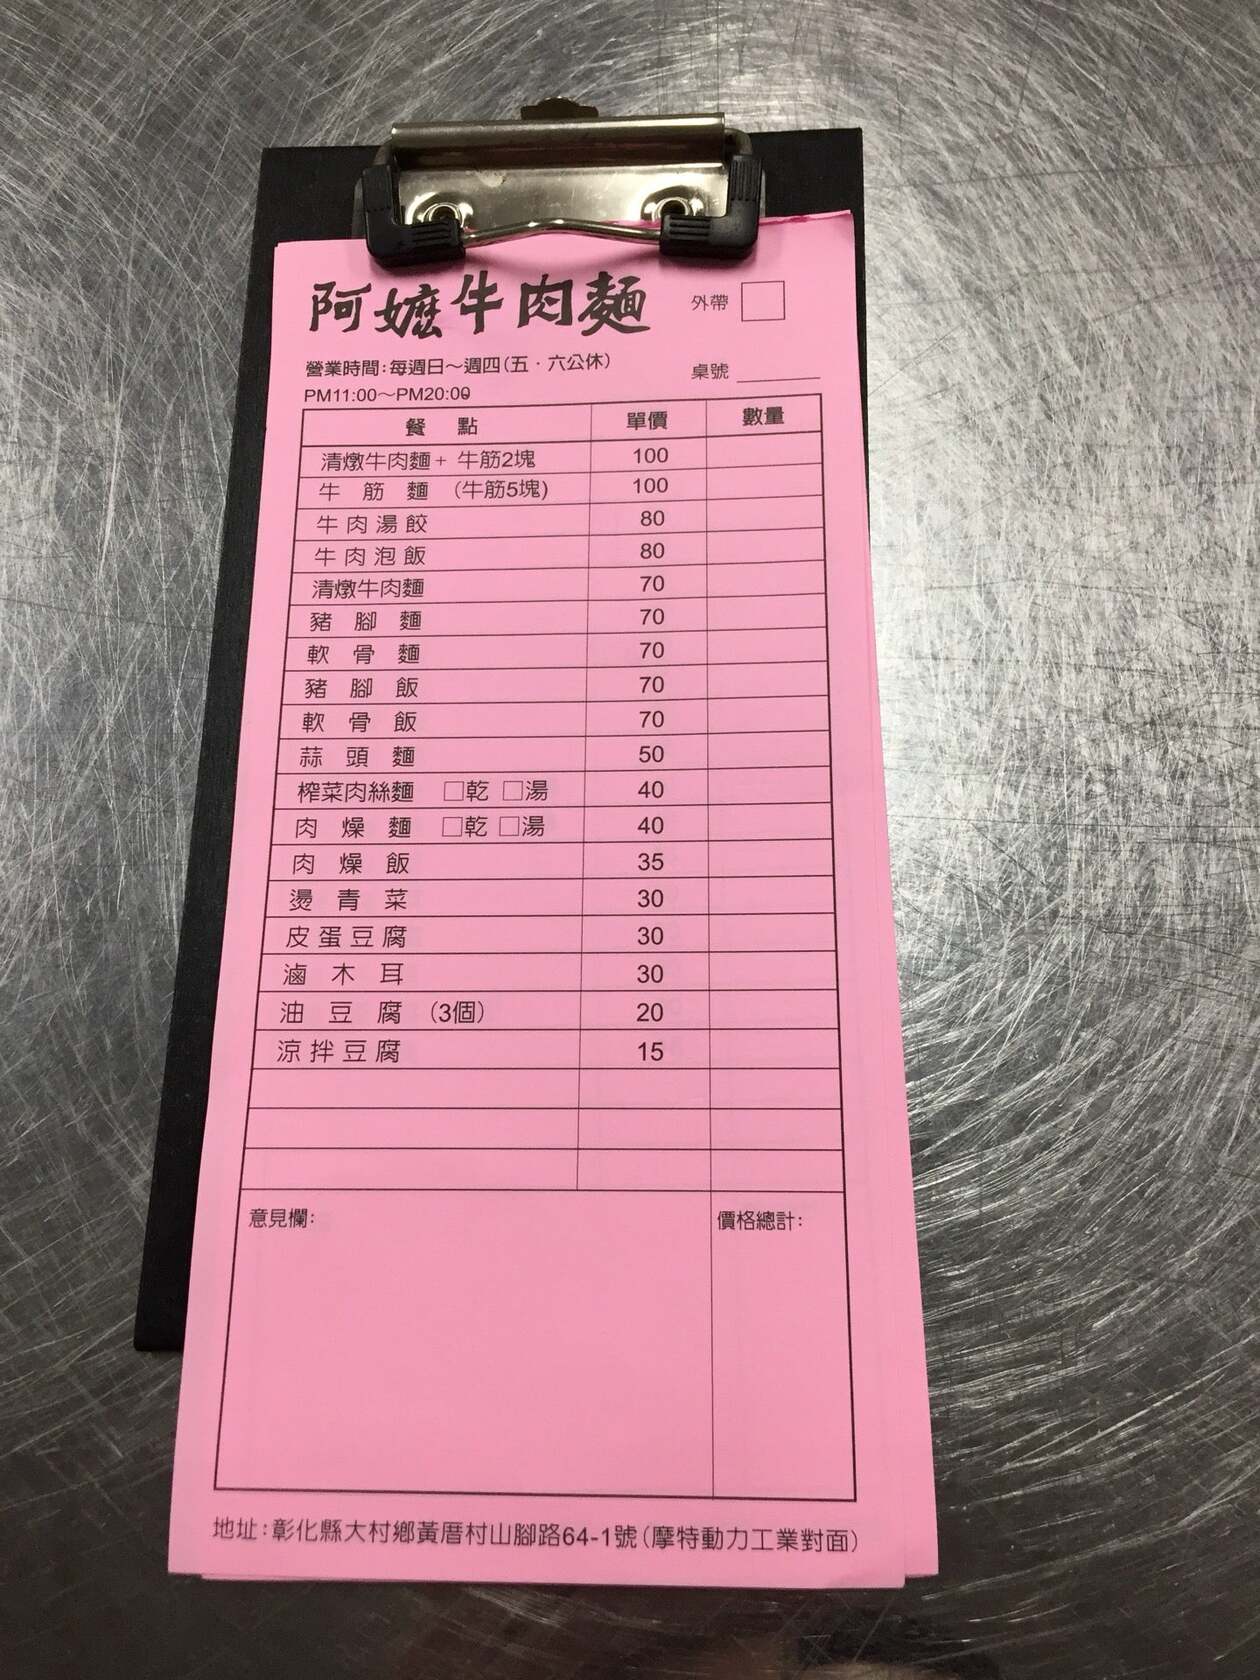 阿嬤牛肉麵
外帶
營業時間:每週日～週四(五．六公休)
桌號
PM11:00～PM20:00
餐 點 單價 數量
清燉牛肉麵+ 牛筋2塊 100
牛 筋 麵 (牛筋5塊) 100
牛肉湯餃 80
牛肉泡飯 80
清燉牛肉麵 70
豬 腳 麵 70
軟 骨 麵 70
豬 腳 飯 70
軟 骨 飯 70
蒜 頭 麵 50
榨菜肉絲麵 □乾 □湯 40
肉 燥 麵 □乾 □湯 40
肉 燥 飯 35
燙 青 菜 30
皮蛋豆腐 30
滷 木 耳 30
油 豆 腐 (3個) 20
涼拌豆腐 15
意見欄: 價格總計:
地址:彰化縣大村鄉黃厝村山腳路64-1號(摩特動力工業對面)